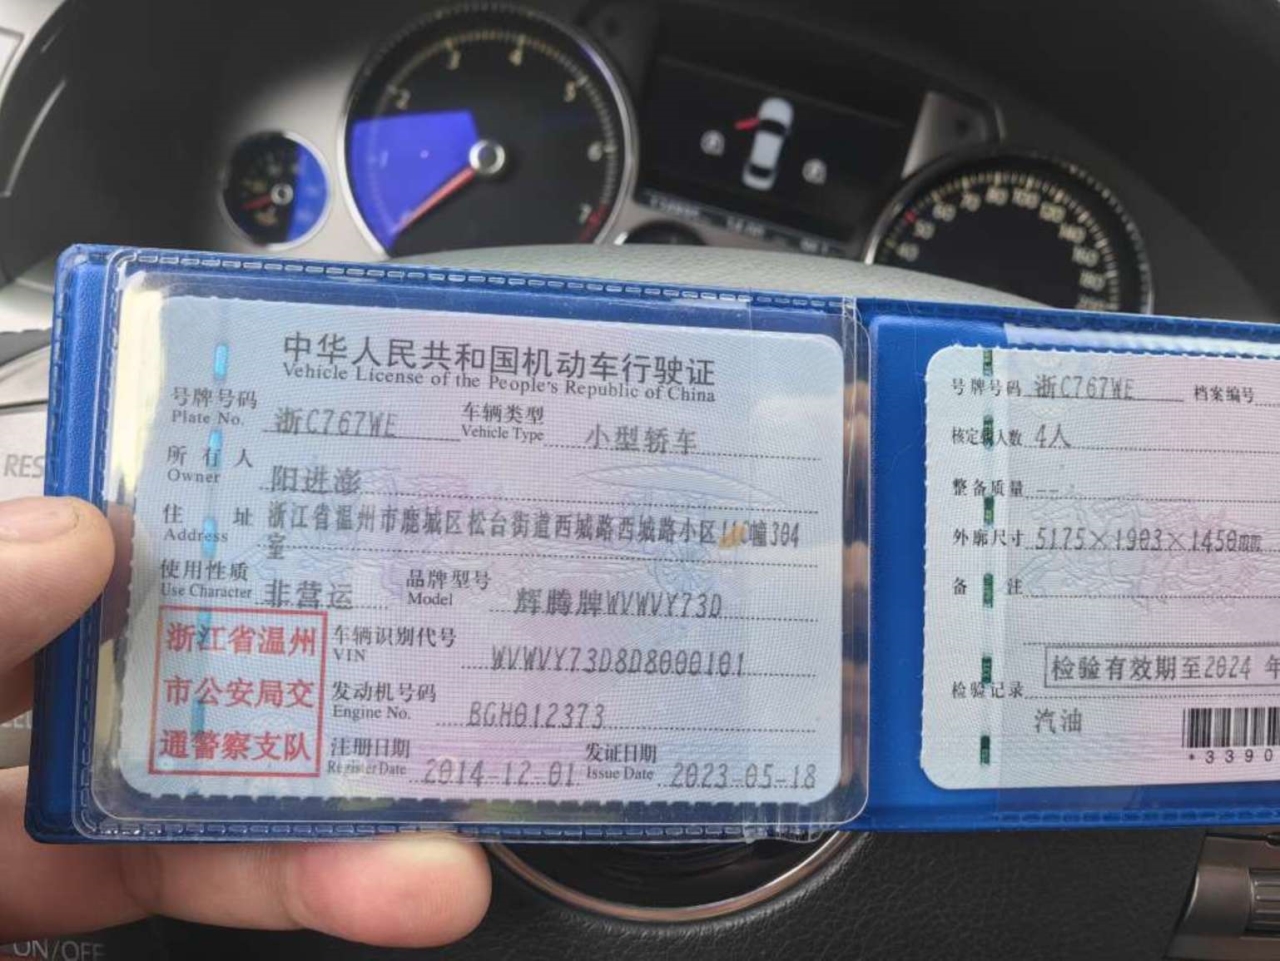 中华人民共和国机动车行驶证
Vehicle License of the People's Republic of China
号牌号码 浙C767WE 车辆类型 小型轿车
Plate No. Vehicle Type
所有人 阳进澎
Owner
住址 浙江省温州市鹿城区松台街道西城路西城路小区110幢304
Address 室
使用性质 非营运 品牌型号 辉腾牌WVWVY73D
Use Character Model
浙江省温州
市公安局交
通警察支队
车辆识别代号 WVWVY73D8D8000101
VIN
发动机号码 BGH012373
Engine No.
注册日期 2014-12-01 发证日期 2023-05-18
Register Date Issue Date
号牌号码 浙C767WE 档案编号
核定载人数 4人
整备质量 --
外廓尺寸 5175×1903×1450mm
备注
检验有效期至2024 年
检验记录
汽油
*3390
1 2 3 4 5 6 7
ON/OFF
RES